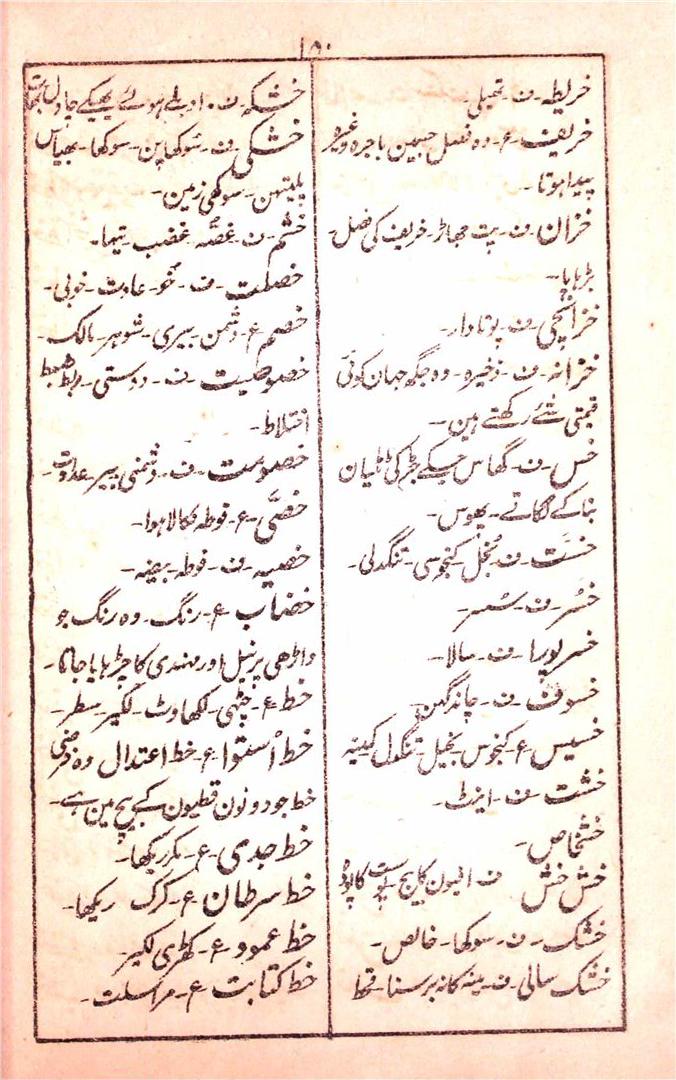 ۱۵۰
خریطہ - ف - تھیلی -
خریف - ع - وہ فصل جسمین باجرہ وغیرہ
پیدا ہوتا -
خزان - ف - پت جھاڑ - خریف کی فصل -
بڑہاپا -
خزانچی - ف - پوتا دار -
خزانہ - ف - ذخیرہ - وہ جگہ جہان کوئی
قیمتی شئے رکھتے ہین -
خس - ف - گھاس جسکے جڑ کی ٹٹیان
بنا کے لگاتے - پھوس -
خسّت - ف - بُخل کنجوسی - تنگدلی -
خسُر - ف - سُسر -
خسر پورا - ف - سالا -
خسوف - ف - چاند گہن
خسیس - ع - کنجوس - بخیل - تنگدل کمینہ
خشت - ف - اینٹ -
خشخاص -
خش خش ف افیون کا بیج پوست کا پودا
خشک - ف - سوکھا - خالص -
خشک سالی - ف - مینہ کا نہ برسنا - قحط
خشکہ - ف - اوبلے ہوئے پھیکے چاول بھات
خشکی - ف - سُوکھا پن - سوکھا - بھیاس
پلیتھن - سوکھی زمین -
خشم - ف - غصّہ غضب - تیہا -
خصلت - ف - خُو - عادت - خوبی -
خصم - ع - دشمن - بیری - شوہر - مالک -
خصوصیت - ف - دوستی - ربط ضبط
اختلاط -
خصومت - ف - دشمنی بیر - عداوت -
خصّی - ع - فوطہ نکالا ہوا -
خصیہ - ف - فوطہ - بیضہ -
خضاب - ع - رنگ - وہ رنگ جو
داڑھی پر نیل اور مہندی کا چڑہایا جاتا -
خط - ع - چٹھی - لکھاوٹ - لکیر - سطر -
خط اُستوا - ع - خط اعتدال وہ فرضی
خط جو دونون قطبون کے بیچ مین ہے -
خط جدی - ع - مکر ریکھا -
خط سرطان - ع - کرک ریکھا -
خط عمود - ع - کھڑی لکیر -
خط کتابت - ع - مراسلت -